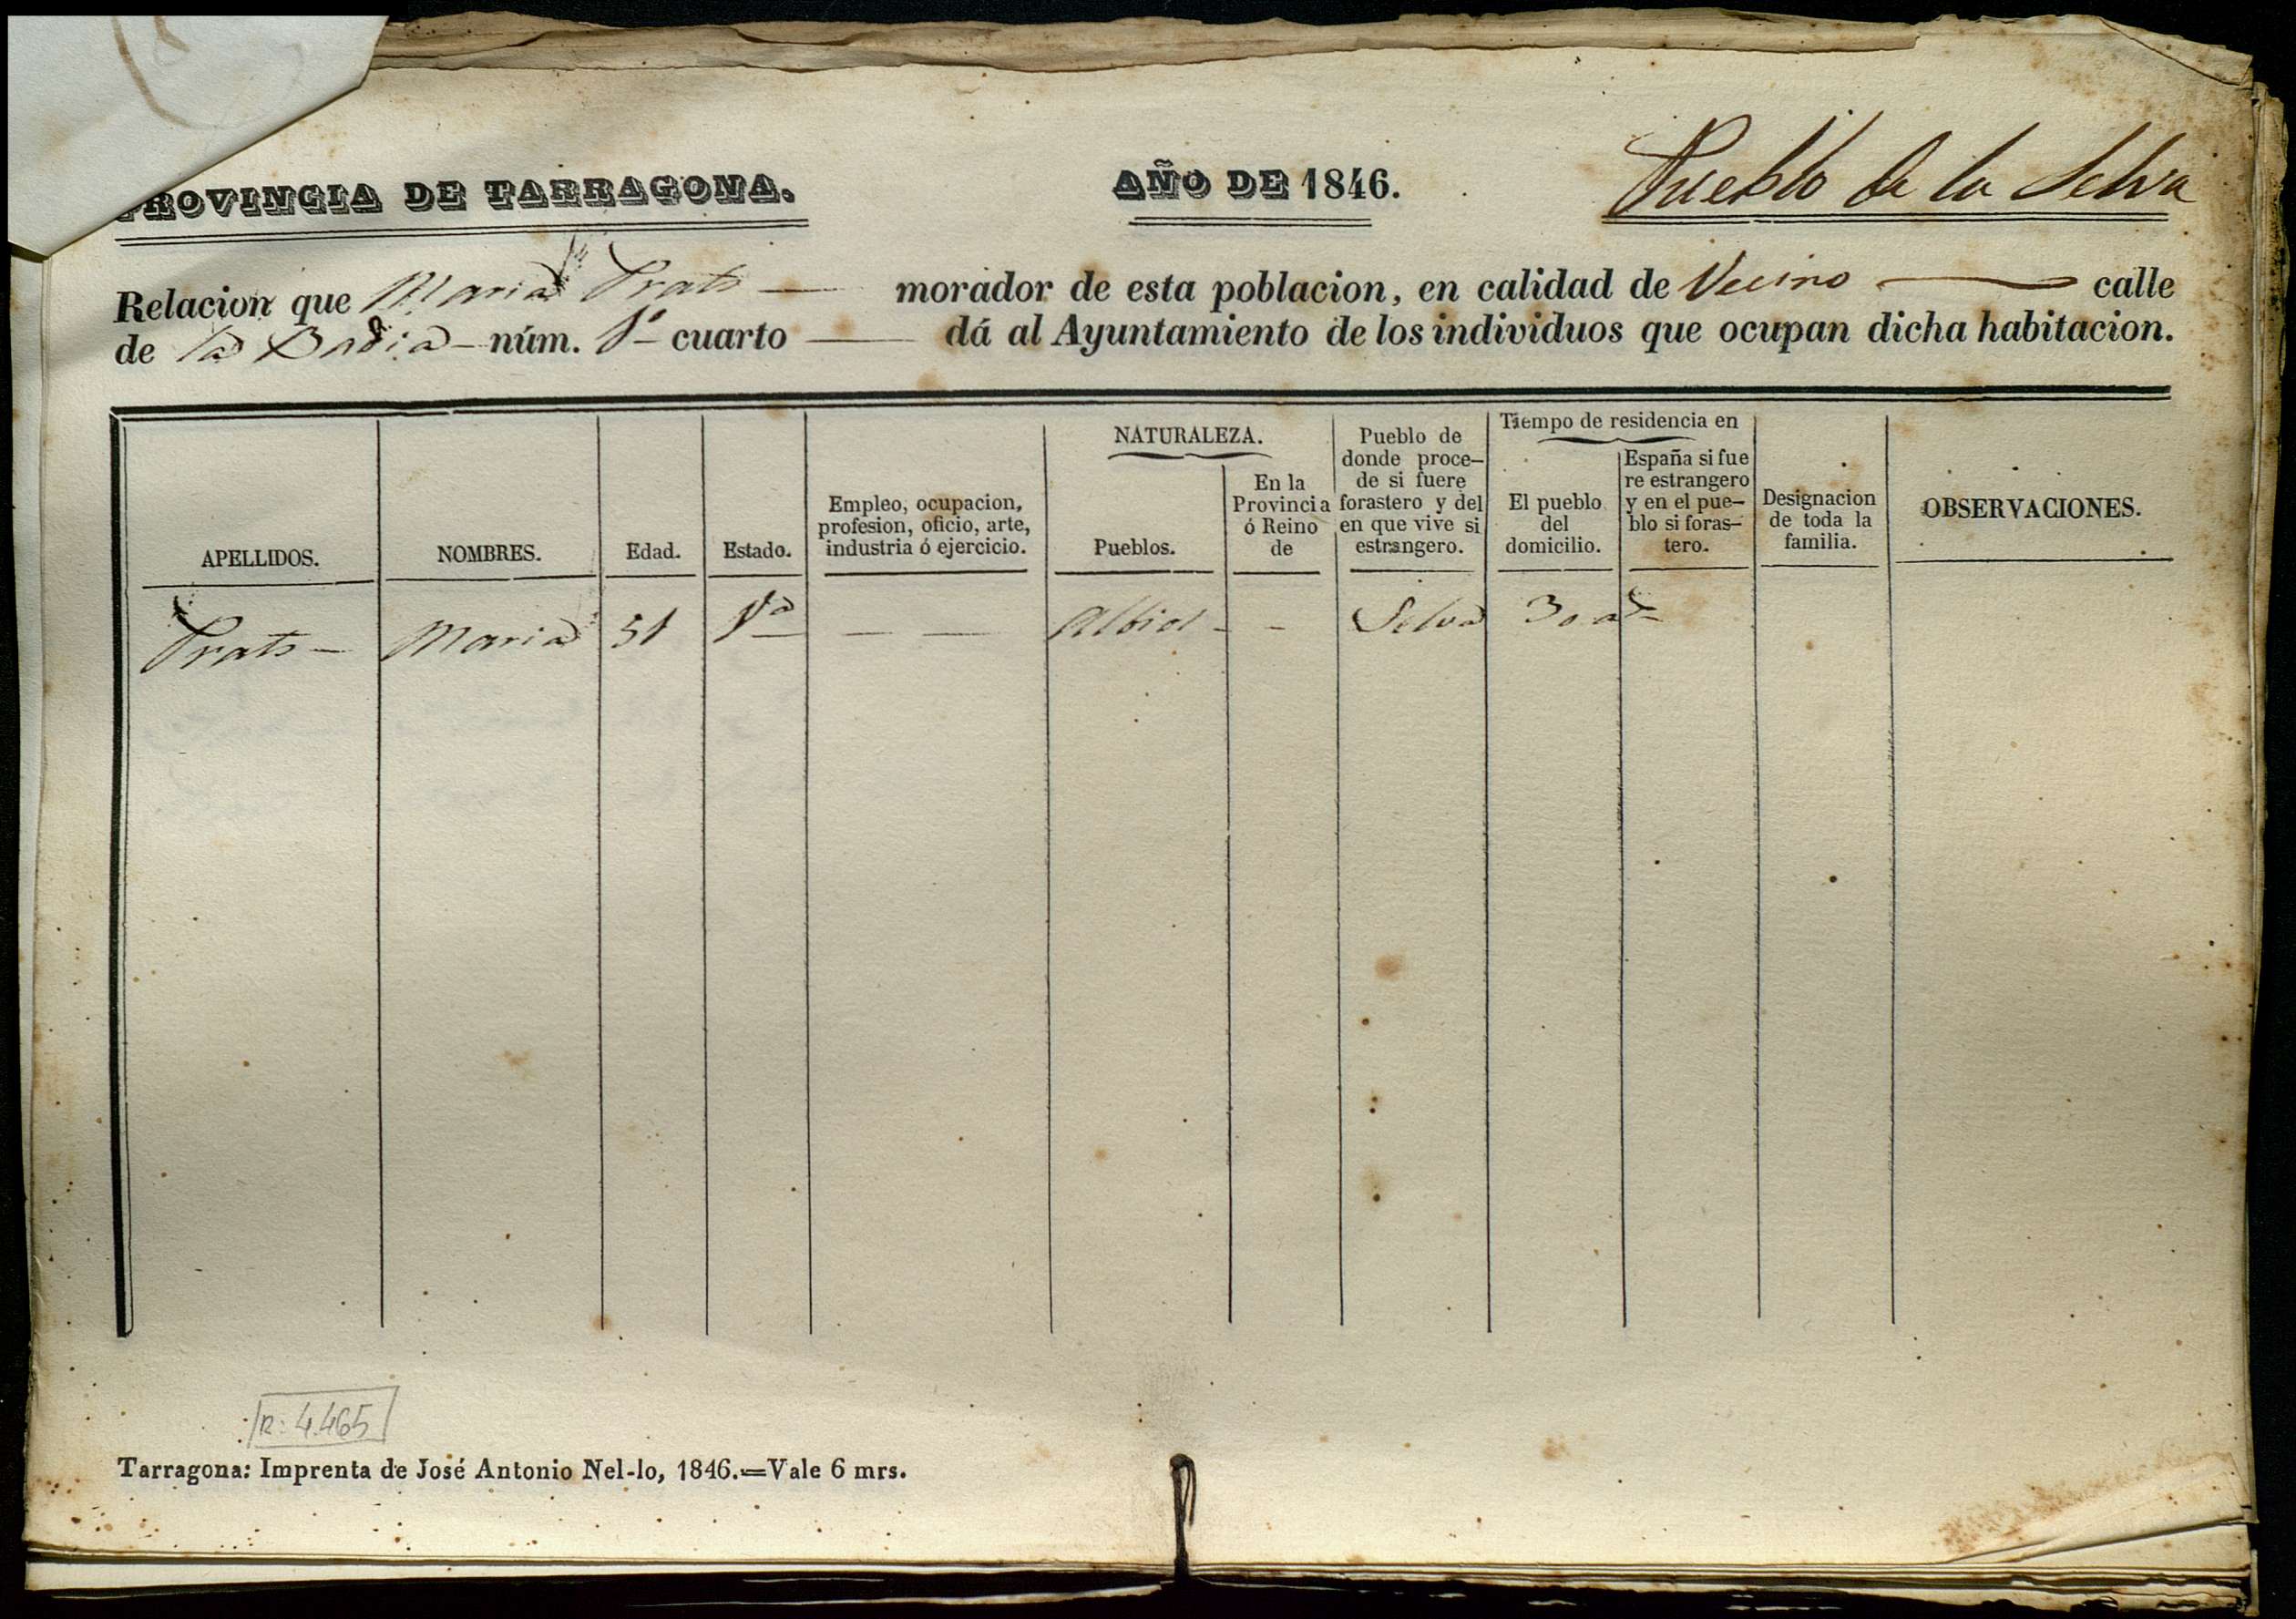 PROVINCIA DE TARRAGONA. AÑO DE 1846. Pueblo de la Selva
Relacion que Maria Prats — morador de esta poblacion, en calidad de Vecino — calle
de la Badia — núm. 1º cuarto — dá al Ayuntamiento de los individuos que ocupan dicha habitacion.
APELLIDOS.
NOMBRES.
Edad.
Estado.
Empleo, ocupacion,
profesion, oficio, arte,
industria ó ejercicio.
NATURALEZA.
Pueblos.
En la
Provincia
ó Reino
de
Pueblo de
donde proce-
de si fuere
forastero y del
en que vive si
estrangero.
Tiempo de residencia en
El pueblo
del
domicilio.
España si fue
re estrangero
y en el pue-
blo si foras-
tero.
Designacion
de toda la
familia.
OBSERVACIONES.
Prats — Maria 51 Vª — — Albiol - - Selva 30 aˢ
R: 4.465
Tarragona: Imprenta de José Antonio Nel-lo, 1846.=Vale 6 mrs.